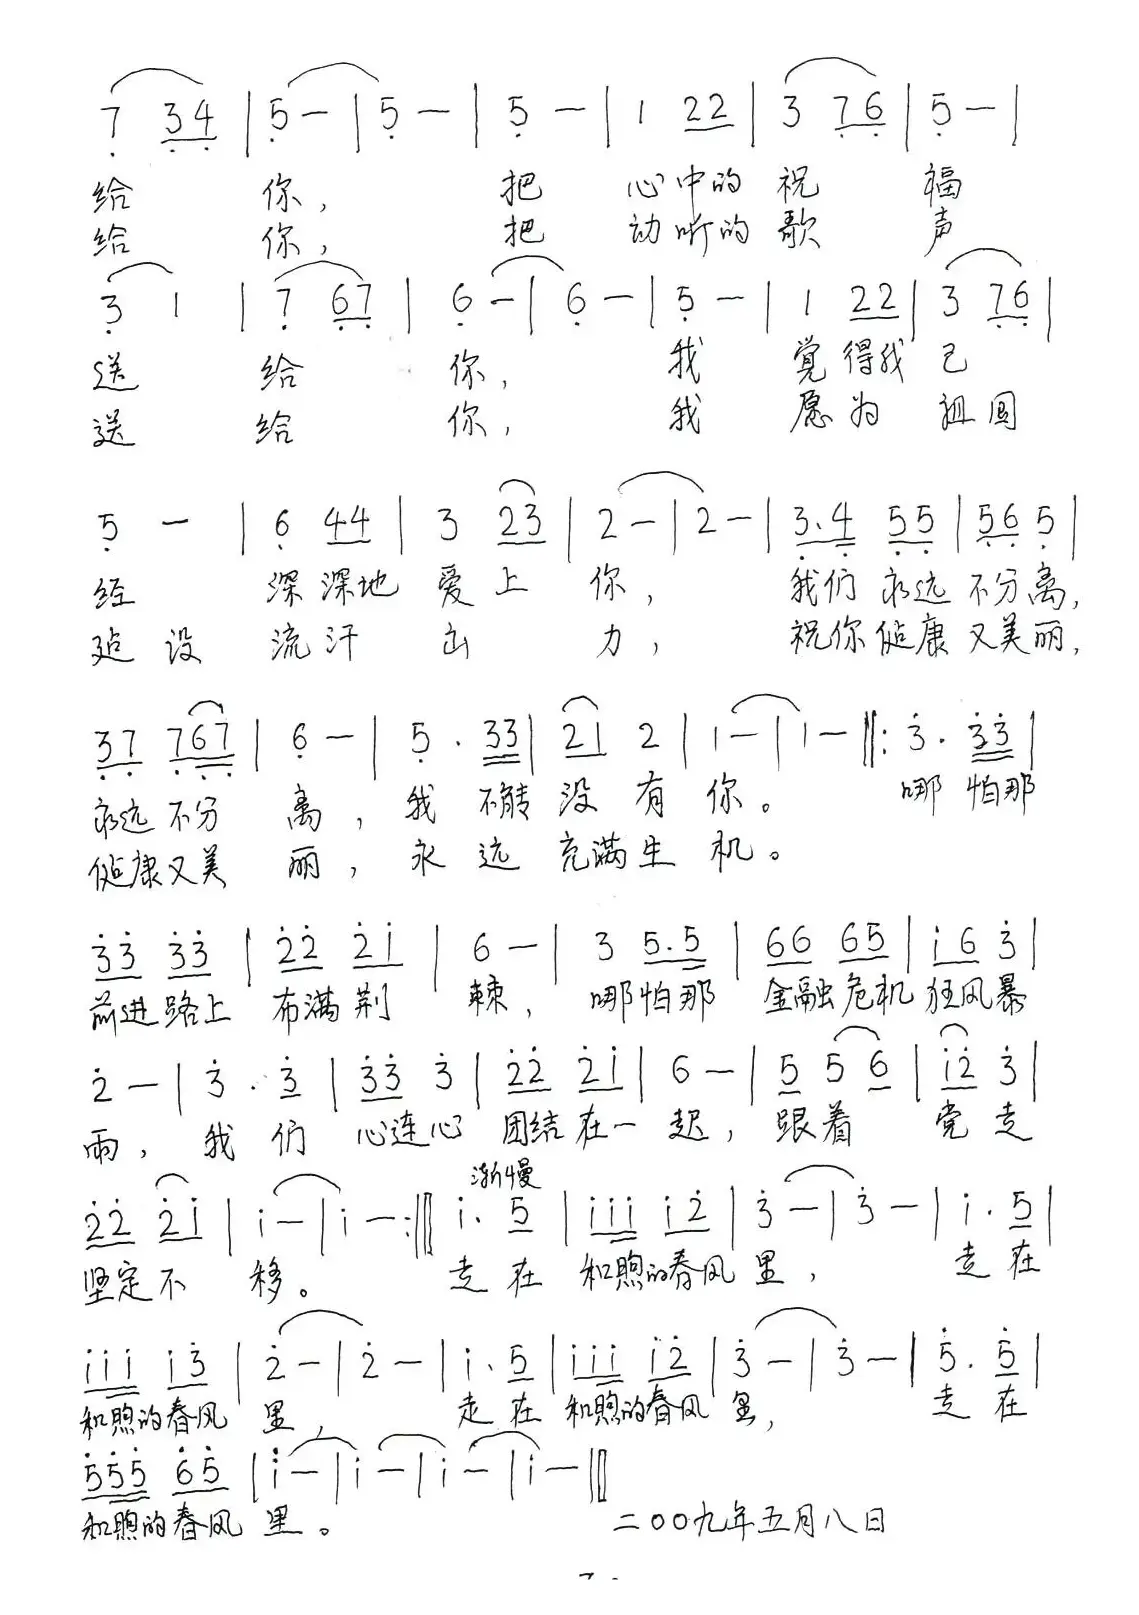 7̣ 3̣4̣ | 5̣ — | 5̣ — | 5̣ — | 1 22 | 3 7̣6̣ | 5̣ — |
给 你， 把 心中的 祝 福
给 你， 把 动听的 歌 声
3̣ 1 | 7̣ 6̣7̣ | 6̣ — | 6̣ — | 5̣ — | 1 22 | 3 7̣6̣ |
送 给 你， 我 觉得我 已
送 给 你， 我 愿为 祖国
5̣ — | 6̣ 44 | 3 23 | 2 — | 2 — | 3̣.4̣ 5̣5̣ | 5̣6̣ 5̣ |
经 深深地 爱上 你， 我们 永远 不分离，
建设 流汗 出 力， 祝你健康 又美丽，
3̣7̣ 7̣6̣7̣ | 6̣ — | 5̣ . 33 | 21 2 | 1 — | 1 — ‖: 3̇ . 3̇3̇ |
永远不分 离，我 不能 没有你。 哪 怕那
健康又美 丽，永 远 充满生 机。
3̇3̇ 3̇3̇ | 2̇2̇ 2̇1̇ | 6 — | 3 5.5 | 66 65 | 1̇6 3̇ |
前进路上 布满荆 棘，哪怕那 金融危机 狂风暴
2̇ — | 3̇ . 3̇ | 3̇3̇ 3̇ | 2̇2̇ 2̇1̇ | 6 — | 5 5 6 | 1̇2̇ 3̇ |
雨，我 们 心连心 团结在一 起，跟着 党走
渐慢
2̇2̇ 2̇1̇ | 1̇ — | 1̇ — :‖ 1̇. 5 | 1̇1̇1̇ 1̇2̇ | 3̇ — | 3̇ — | 1̇ . 5 |
坚定不 移。 走在 和煦的春风里， 走在
1̇1̇1̇ 1̇3̇ | 2̇ — | 2̇ — | 1̇. 5 | 1̇1̇1̇ 1̇2̇ | 3̇ — | 3̇ — | 5̇. 5̇ |
和煦的春风 里， 走在 和煦的春风 里， 走在
5̇5̇5̇ 6̇5̇ | 1̇ — | 1̇ — | 1̇ — | 1̇ — ‖
和煦的春风 里。 二〇〇九年五月八日